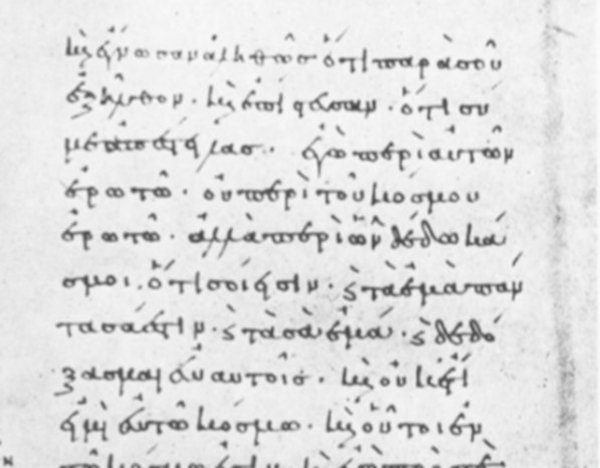 καὶ ἔγνωσαν ἀληθῶς ὅτι παρὰ σοῦ
ἐξῆλθον· καὶ ἐπίστευσαν· ὅτι σύ
με ἀπέστειλας· ἐγὼ περὶ αὐτῶν
ἐρωτῶ· οὐ περὶ τοῦ κόσμου
ἐρωτῶ· ἀλλὰ περὶ ὧν δέδωκάς
μοι· ὅτι σοί εἰσιν· καὶ τὰ ἐμὰ πάν
τα σά ἐστιν· καὶ τὰ σὰ ἐμά· καὶ δεδό
ξασμαι ἐν αὐτοῖς· καὶ οὐκέτι
εἰμὶ ἐν τῶ κόσμω· καὶ οὗτοι ἐν